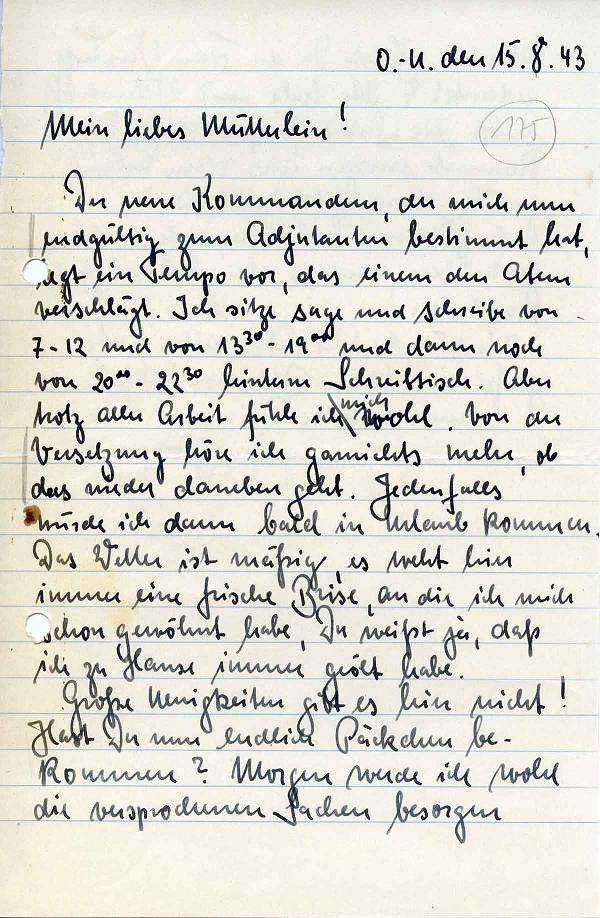 O.-U. den 15.8.43
Mein liebes Mütterlein!
175
Der neue Kommandeur, der mich nun
endgültig zum Adjutanten bestimmt hat,
legt ein Tempo vor, das einem den Atem
verschlägt. Ich sitze sage und schreibe von
7-12 und von 13³⁰-19⁰⁰ und dann noch
von 20⁰⁰-22³⁰ hinterm Schreibtisch. Aber
trotz aller Arbeit fühle ich mich wohl. Von der
Versetzung höre ich garnichts mehr, ob
das wieder daneben geht. Jedenfalls
würde ich dann bald in Urlaub kommen.
Das Wetter ist mäßig, es weht hier
immer eine frische Brise, an die ich mich
schon gewöhnt habe, Du weißt ja, daß
ich zu Hause immer geölt habe.
Große Neuigkeiten gibt es hier nicht!
Hast Du nun endlich Päckchen be-
kommen? Morgen werde ich wohl
die versprochenen Sachen besorgen